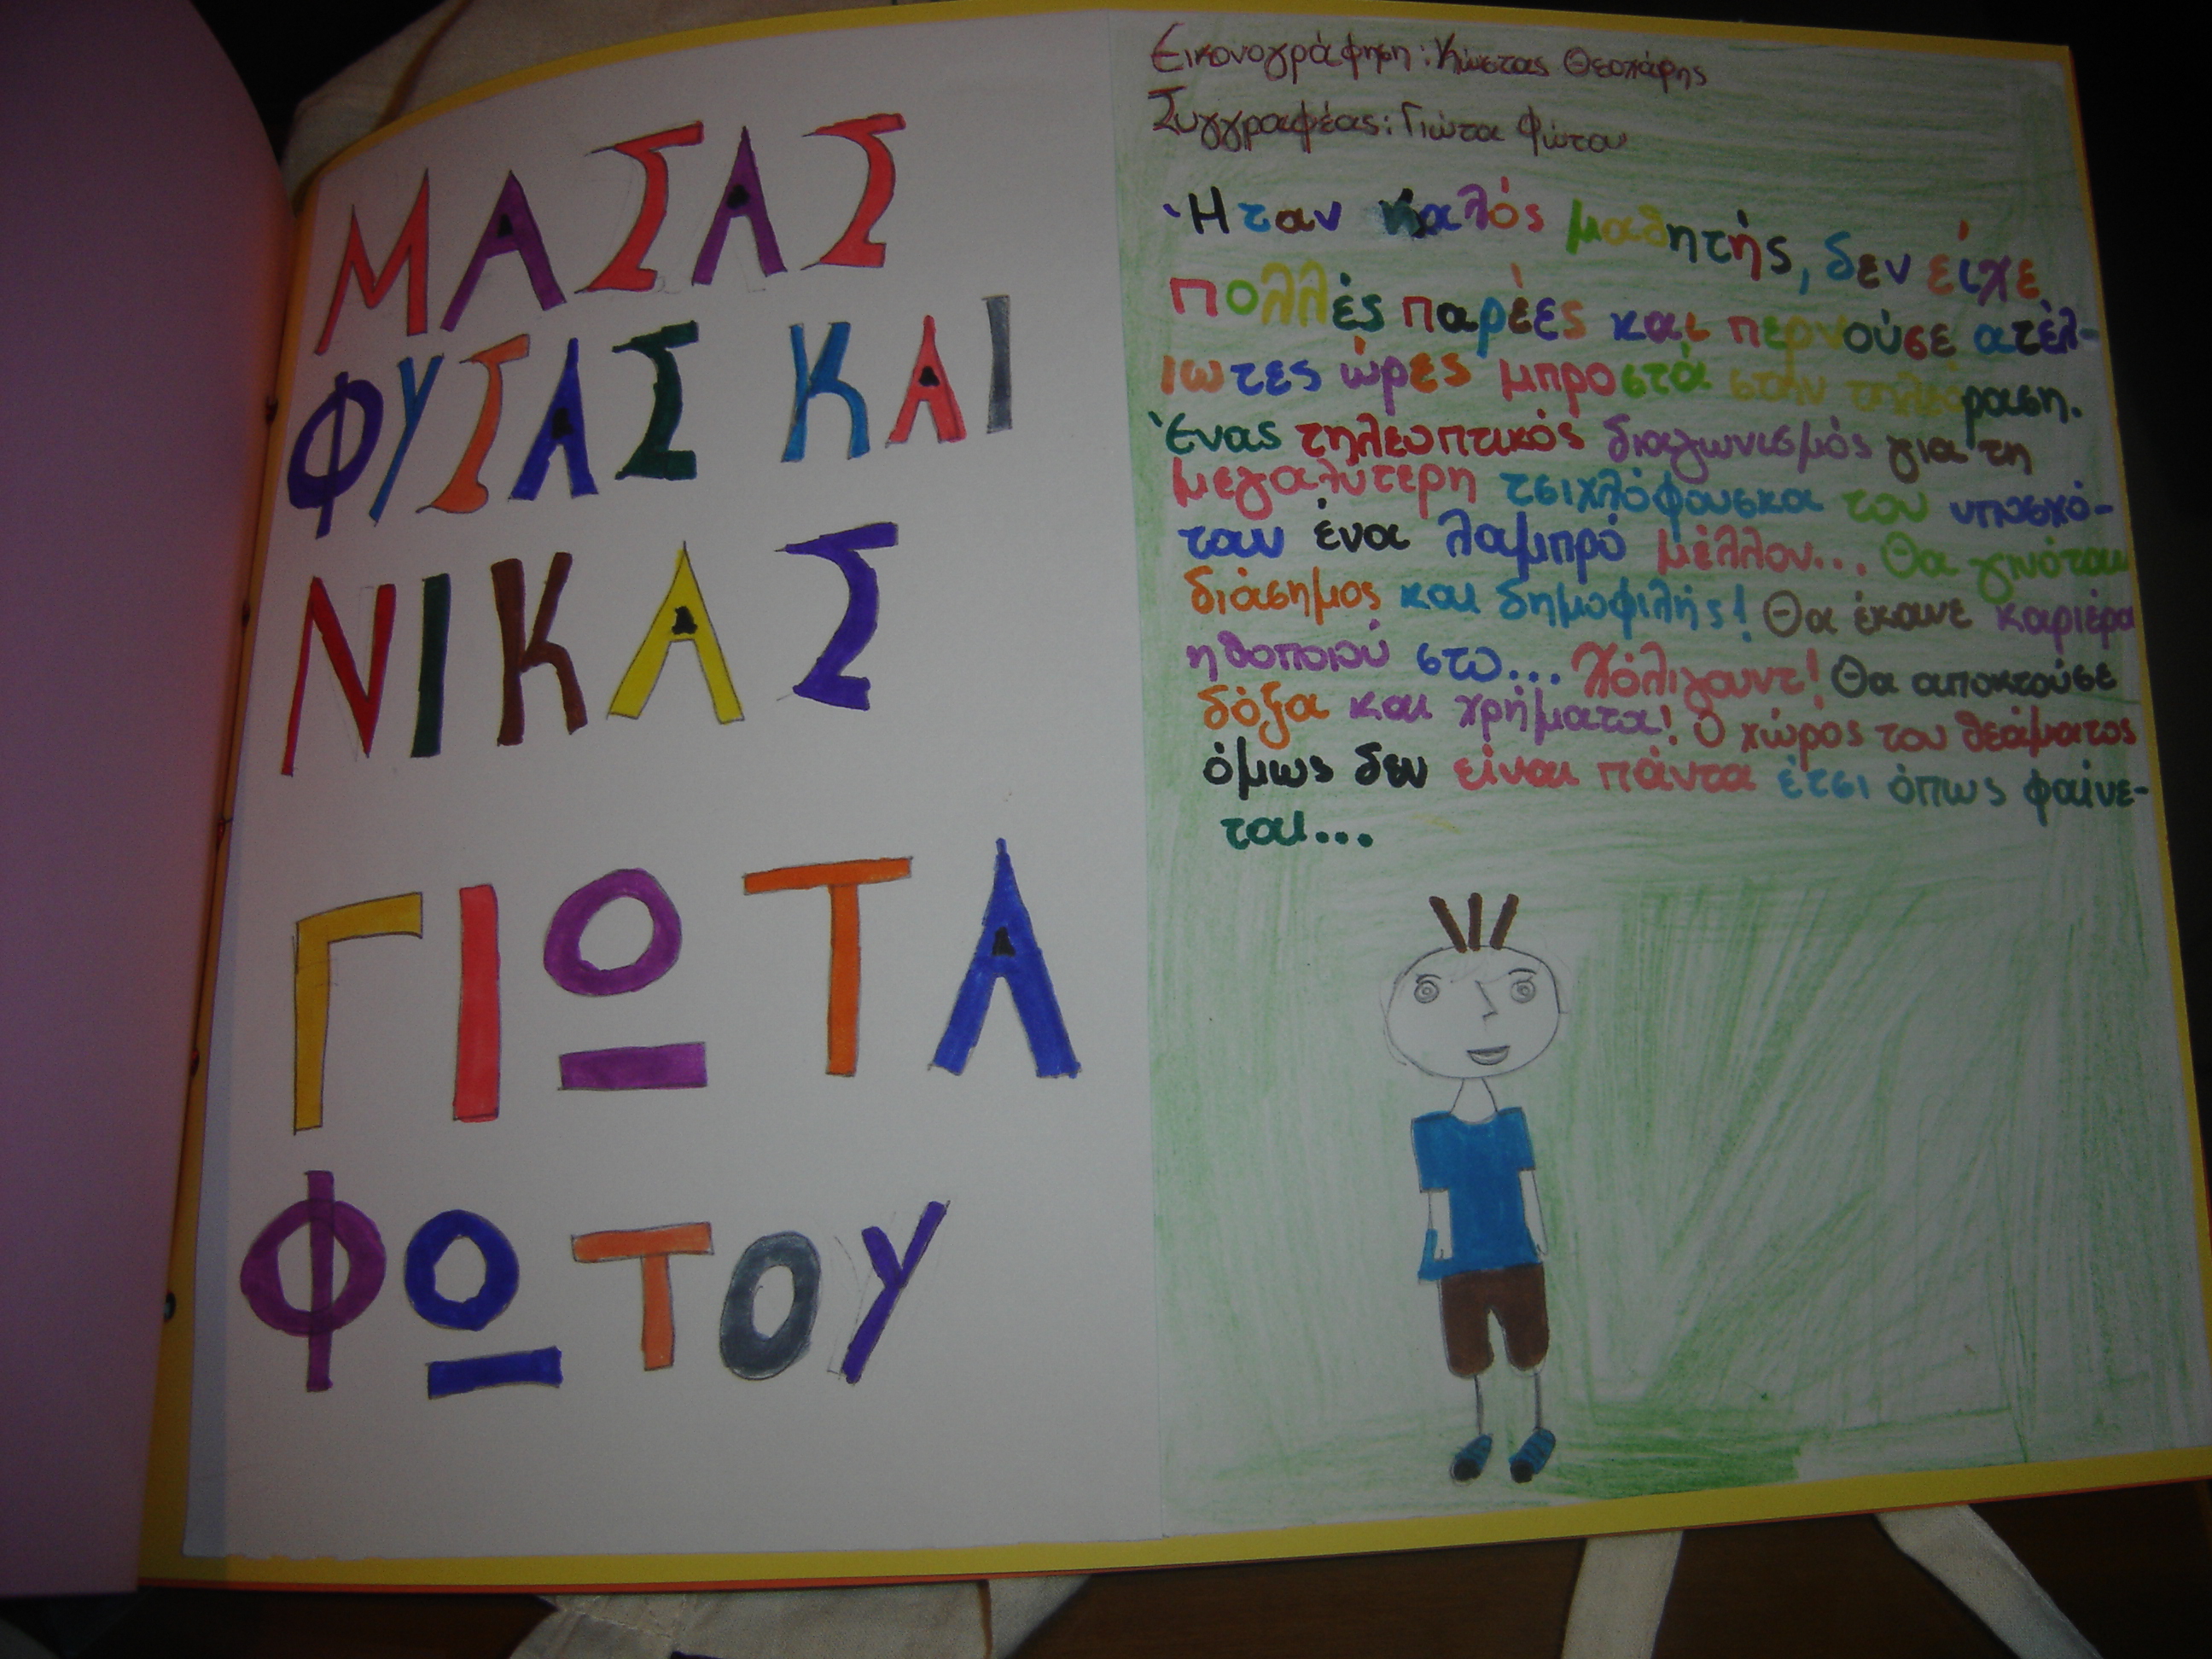 ΜΑΣΑΣ
ΦΥΣΑΣ ΚΑΙ
ΝΙΚΑΣ
ΓΙΩΤΑ
ΦΩΤΟΥ
Εικονογράφηση: Κώστας Θεοχάρης
Συγγραφέας: Γιώτα Φώτου
Ήταν καλός μαθητής, δεν είχε
πολλές παρέες και περνούσε ατέλ-
ιωτες ώρες μπροστά στην τηλεόραση.
Ένας τηλεοπτικός διαγωνισμός για τη
μεγαλύτερη τσιχλόφουσκα του υποσχό-
ταν ένα λαμπρό μέλλον... Θα γινόταν
διάσημος και δημοφιλής! Θα έκανε καριέρα
ηθοποιού στο... Χόλιγουντ! Θα αποκτούσε
δόξα και χρήματα! Ο χώρος του θεάματος
όμως δεν είναι πάντα έτσι όπως φαίνε-
ται...